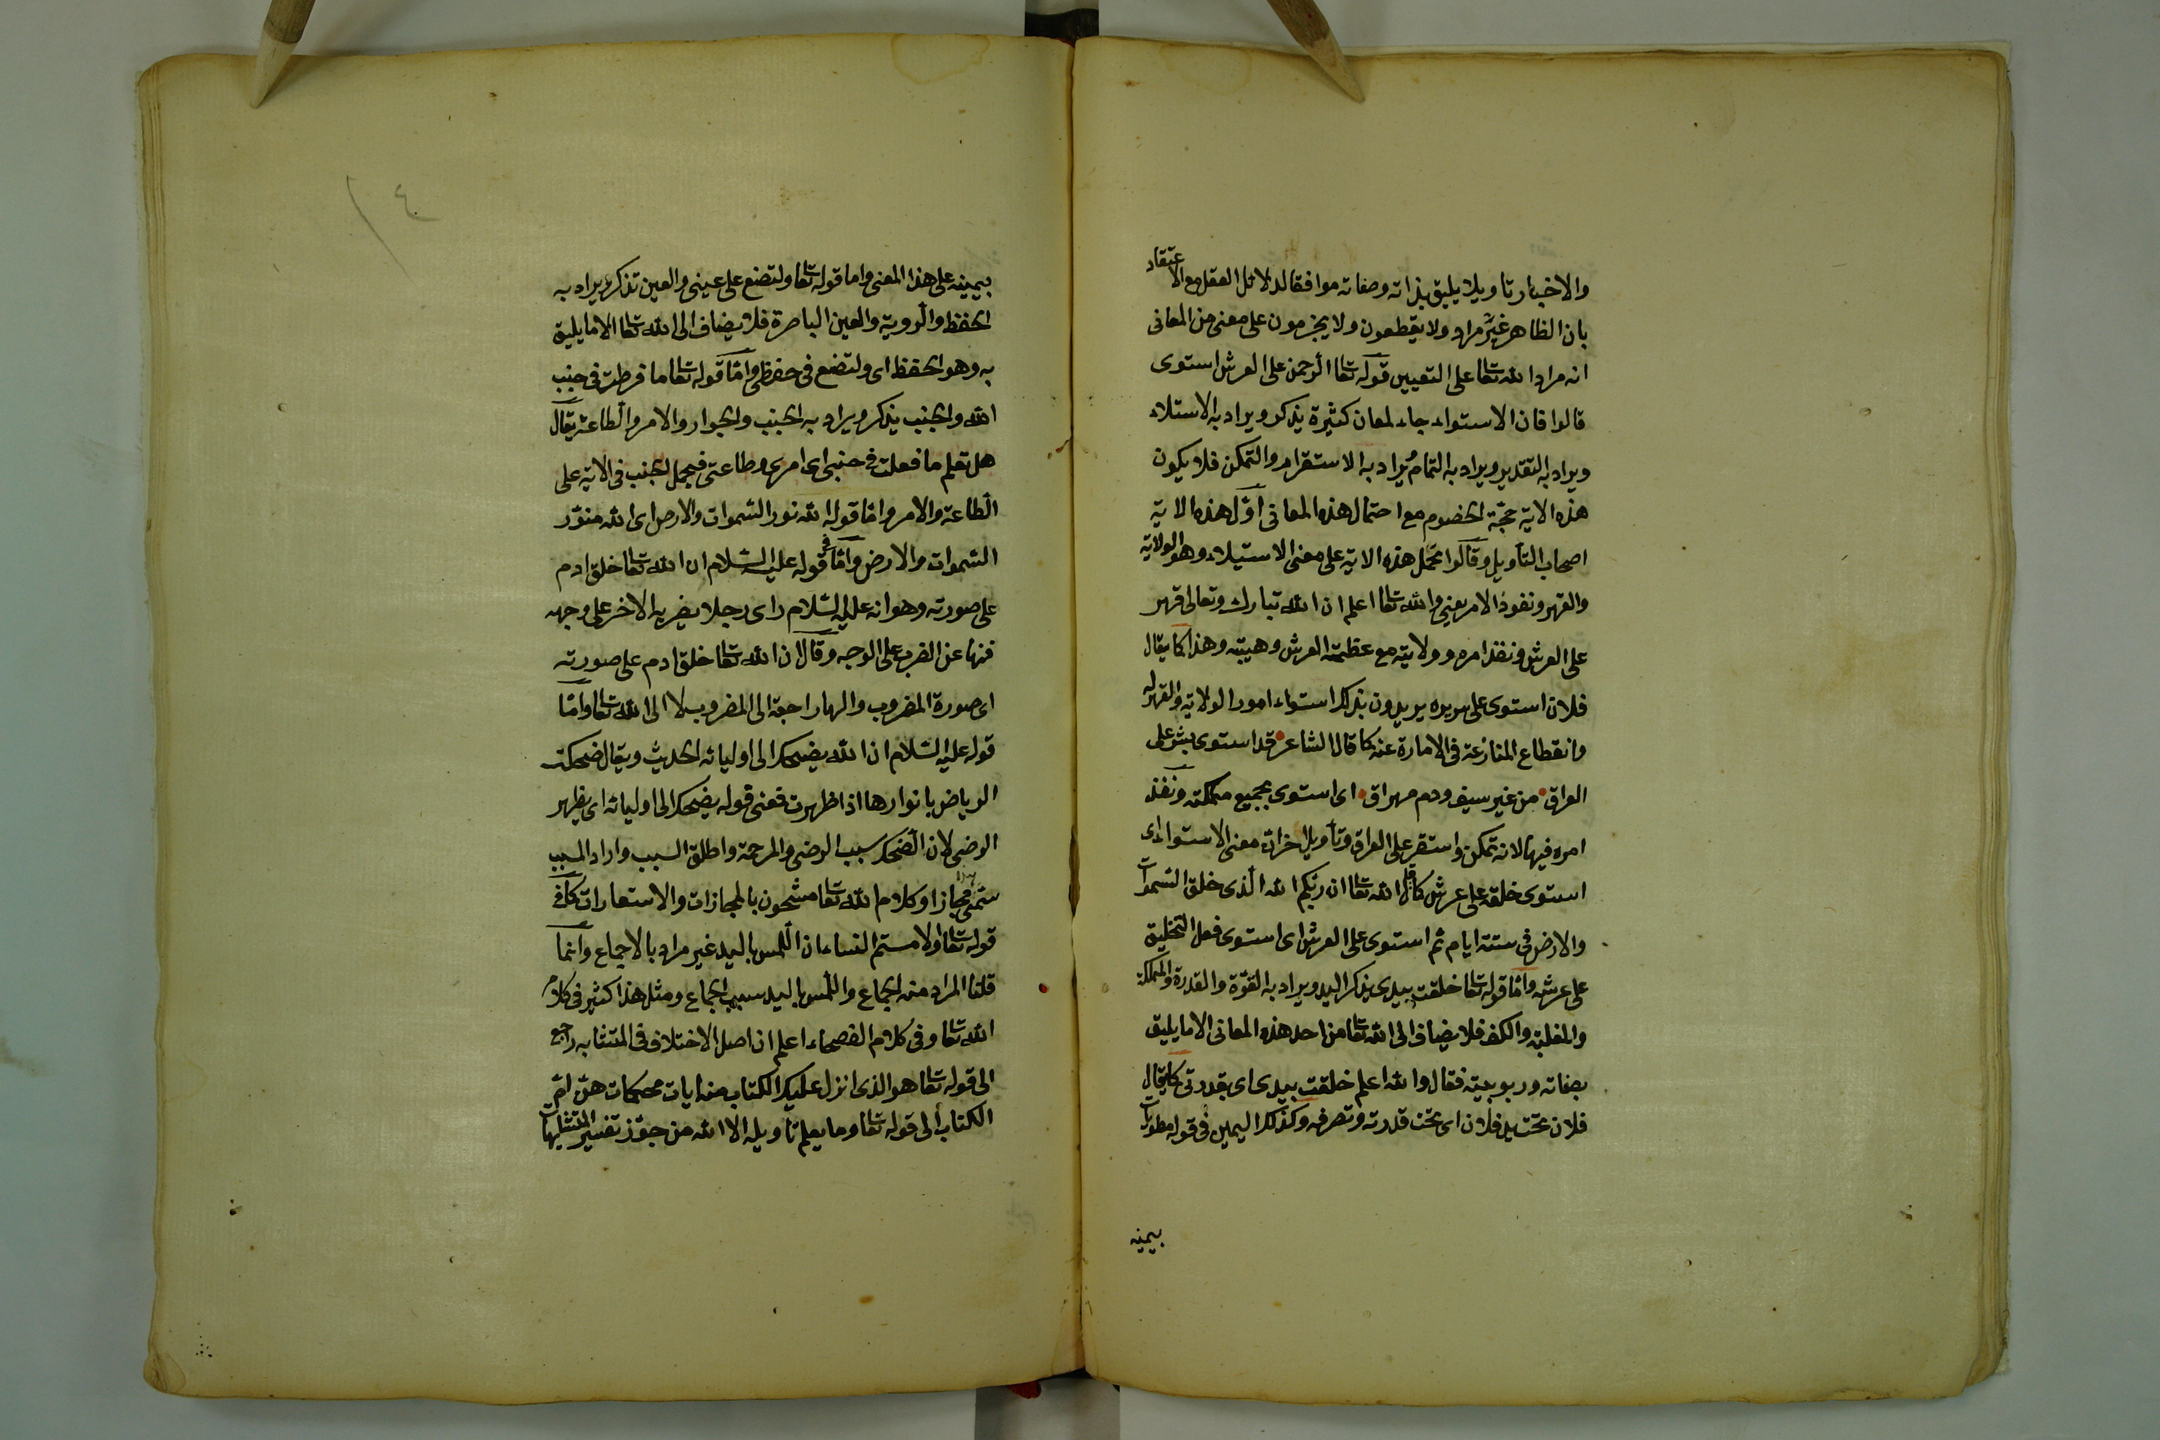 والاخبار تاويلا يليق بذاته وصفاته موافقا لدلائل العقل مع الاعتقاد
بان الظاهر غير مراد ولا يقطعون ولا يجزمون على معنى من المعانى
انه مراد الله تعا على التعيين قوله تعا الرحمن على العرش استوى
قالوا فان الاستواء جاء لمعان كثيرة يذكر ويراد به الاستلاء
ويراد به التقدير ويراد به التمام يراد به الاستقرار والتمكن فلا يكون
هذه الاية حجة الخصوم مع احتمال هذه المعانى اوّل هذه الاية
اصحاب التأويل وقالوا محمل هذه الاية على معنى الاستيلاء وهو الولاية
والقهر ونفوذ الامر يعنى والله تعا اعلم ان الله تبارك وتعالى قهر
على العرش ونفذ امره وولايته مع عظمة العرش وهيبته وهذا كما يقال
فلان استوى على سريره يريدون بذلك استواء امور الولاية والقهر له
وانقطاع المنازعة فى الامارة عنه كما قال الشاعر قد استوى بشر على
العراق من غير سيف ودم مهراق اى استوى بجميع مملكته ونفذ
امره فيها لانه تمكن واستقر على العراق وتأويل اخر ان معنى الاستواء اى
استوى خلقه على عرش كما قال الله تعا ان ربكم الله الذى خلق السموات
والارض فى ستة ايام ثم استوى على العرش اى استوى فعل التخليق
على عرشه وامّا قوله تعا خلقت بيدى يذكر اليد ويراد به القوة والقدرة والمملكة
والمغلبة والكف فلا يضاف الى الله تعا من احد هذه المعانى الا ما يليق
بصفاته وربوبيته فقال والله اعلم خلقت بيدى اى بقدرتى كما يقال
فلان تحت يد فلان اى تحت قدرته وتصرفه وكذلك اليمين فى قوله مطويات
بيمينه
١٤
بيمينه على هذا المعنى واما قوله تعا ولتصنع على عينى والعين تذكر ويراد به
الحفظ والروية والعين الباصرة فلا يضاف الى الله تعا الا ما يليق
به وهو الحفظ اى ولتصنع فى حفظى وامّا قوله تعا ما فرطت فى جنب
الله والجنب يذكر ويراد به الجنب والجوار والامر والطاعة يقال
هل تعلم ما فعلت فى جنبى اى امرى وطاعتى فيحمل الجنب فى الاية على
الطاعة والامر وامّا قوله الله نور السموات والارض اى الله منوّر
السموات والارض وامّا فى قوله عليه السلام ان الله تعا خلق ادم
على صورته وهو انه عليه السلام راى رجلا يضربه الاخر على وجهه
فنهاه عن الضرب على الوجه وقال ان الله تعا خلق ادم على صورته
اى صورة المضروب والهاء راجعة الى المضروب لا الى الله تعا وامّا
قوله عليه السلام ان الله يضحك الى اوليائه الحديث ويقال ضحكت
الرياض بانوارها اذا ظهرت فمعنى قوله يضحك الى اوليائه اى يظهر
الرضى لان الضحك سبب الرضى والمرحمة واطلق السبب واراد المسبب
سمّى هذا مجازا وكلام الله تعا مشحون بالمجازات والاستعارات كما فى
قوله تعا او لامستم النساء ان اللمس باليد غير مراد بالاجماع وانما
قلنا المراد منه الجماع واللمس باليد سبب الجماع ومثل هذا كثير فى كلام
الله تعا وفى كلام الفصحاء اعلم ان اصل الاختلاف فى المتشابه راجع
الى قوله تعا هو الذى انزل عليك الكتاب منه ايات محكمات هنّ امّ
الكتاب الى قوله تعا وما يعلم تاويله الا الله من جوّز تفسير المتشابهات